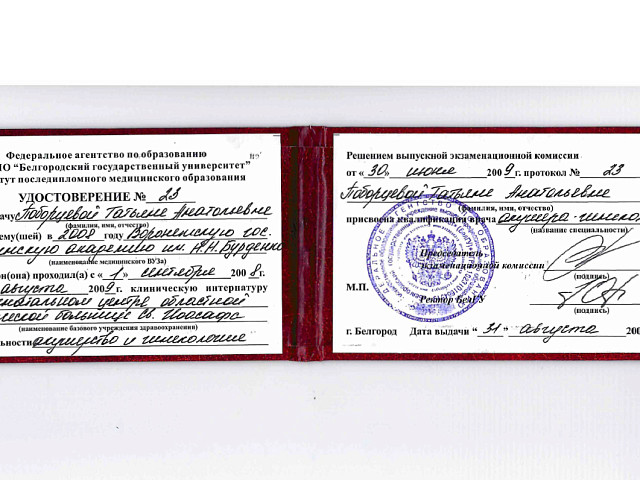 Федеральное агентство по образованию
ПО “Белгородский государственный университет”
тут последипломного медицинского образования
УДОСТОВЕРЕНИЕ № 23
ачу Поборцевой Татьяне Анатольевне
(фамилия, имя, отчество)
ему(шей) в 2008 году Воронежскую гос.
инскую академию им. Н.Н. Бурденко
(наименование медицинского ВУЗа)
он(она) проходил(а) с « 1 » сентября 2008 г.
августа 2009 г. клиническую интернатуру
натальном центре областной
еской больницы Св. Иоасафа
(наименование базового учреждения здравоохранения)
льности акушерство и гинекология
Решением выпускной экзаменационной комиссии
от « 30 » июня 2009 г. протокол № 23
Поборцевой Татьяне Анатольевне
(фамилия, имя, отчество)
присвоена квалификация врача акушера-гинеко
(название специальности)
Председатель
экзаменационной комиссии
(подпись)
М.П.
Ректор БелГУ
(подпись)
г. Белгород Дата выдачи “ 31 ” августа 200